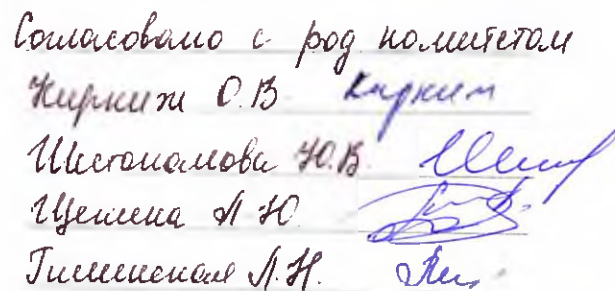 Согласовано с род комитетом
Киркиж О.В. Киркиж
Шестопалова Ю.В.
Щемена Л Ю
Гилинская Л.Н.